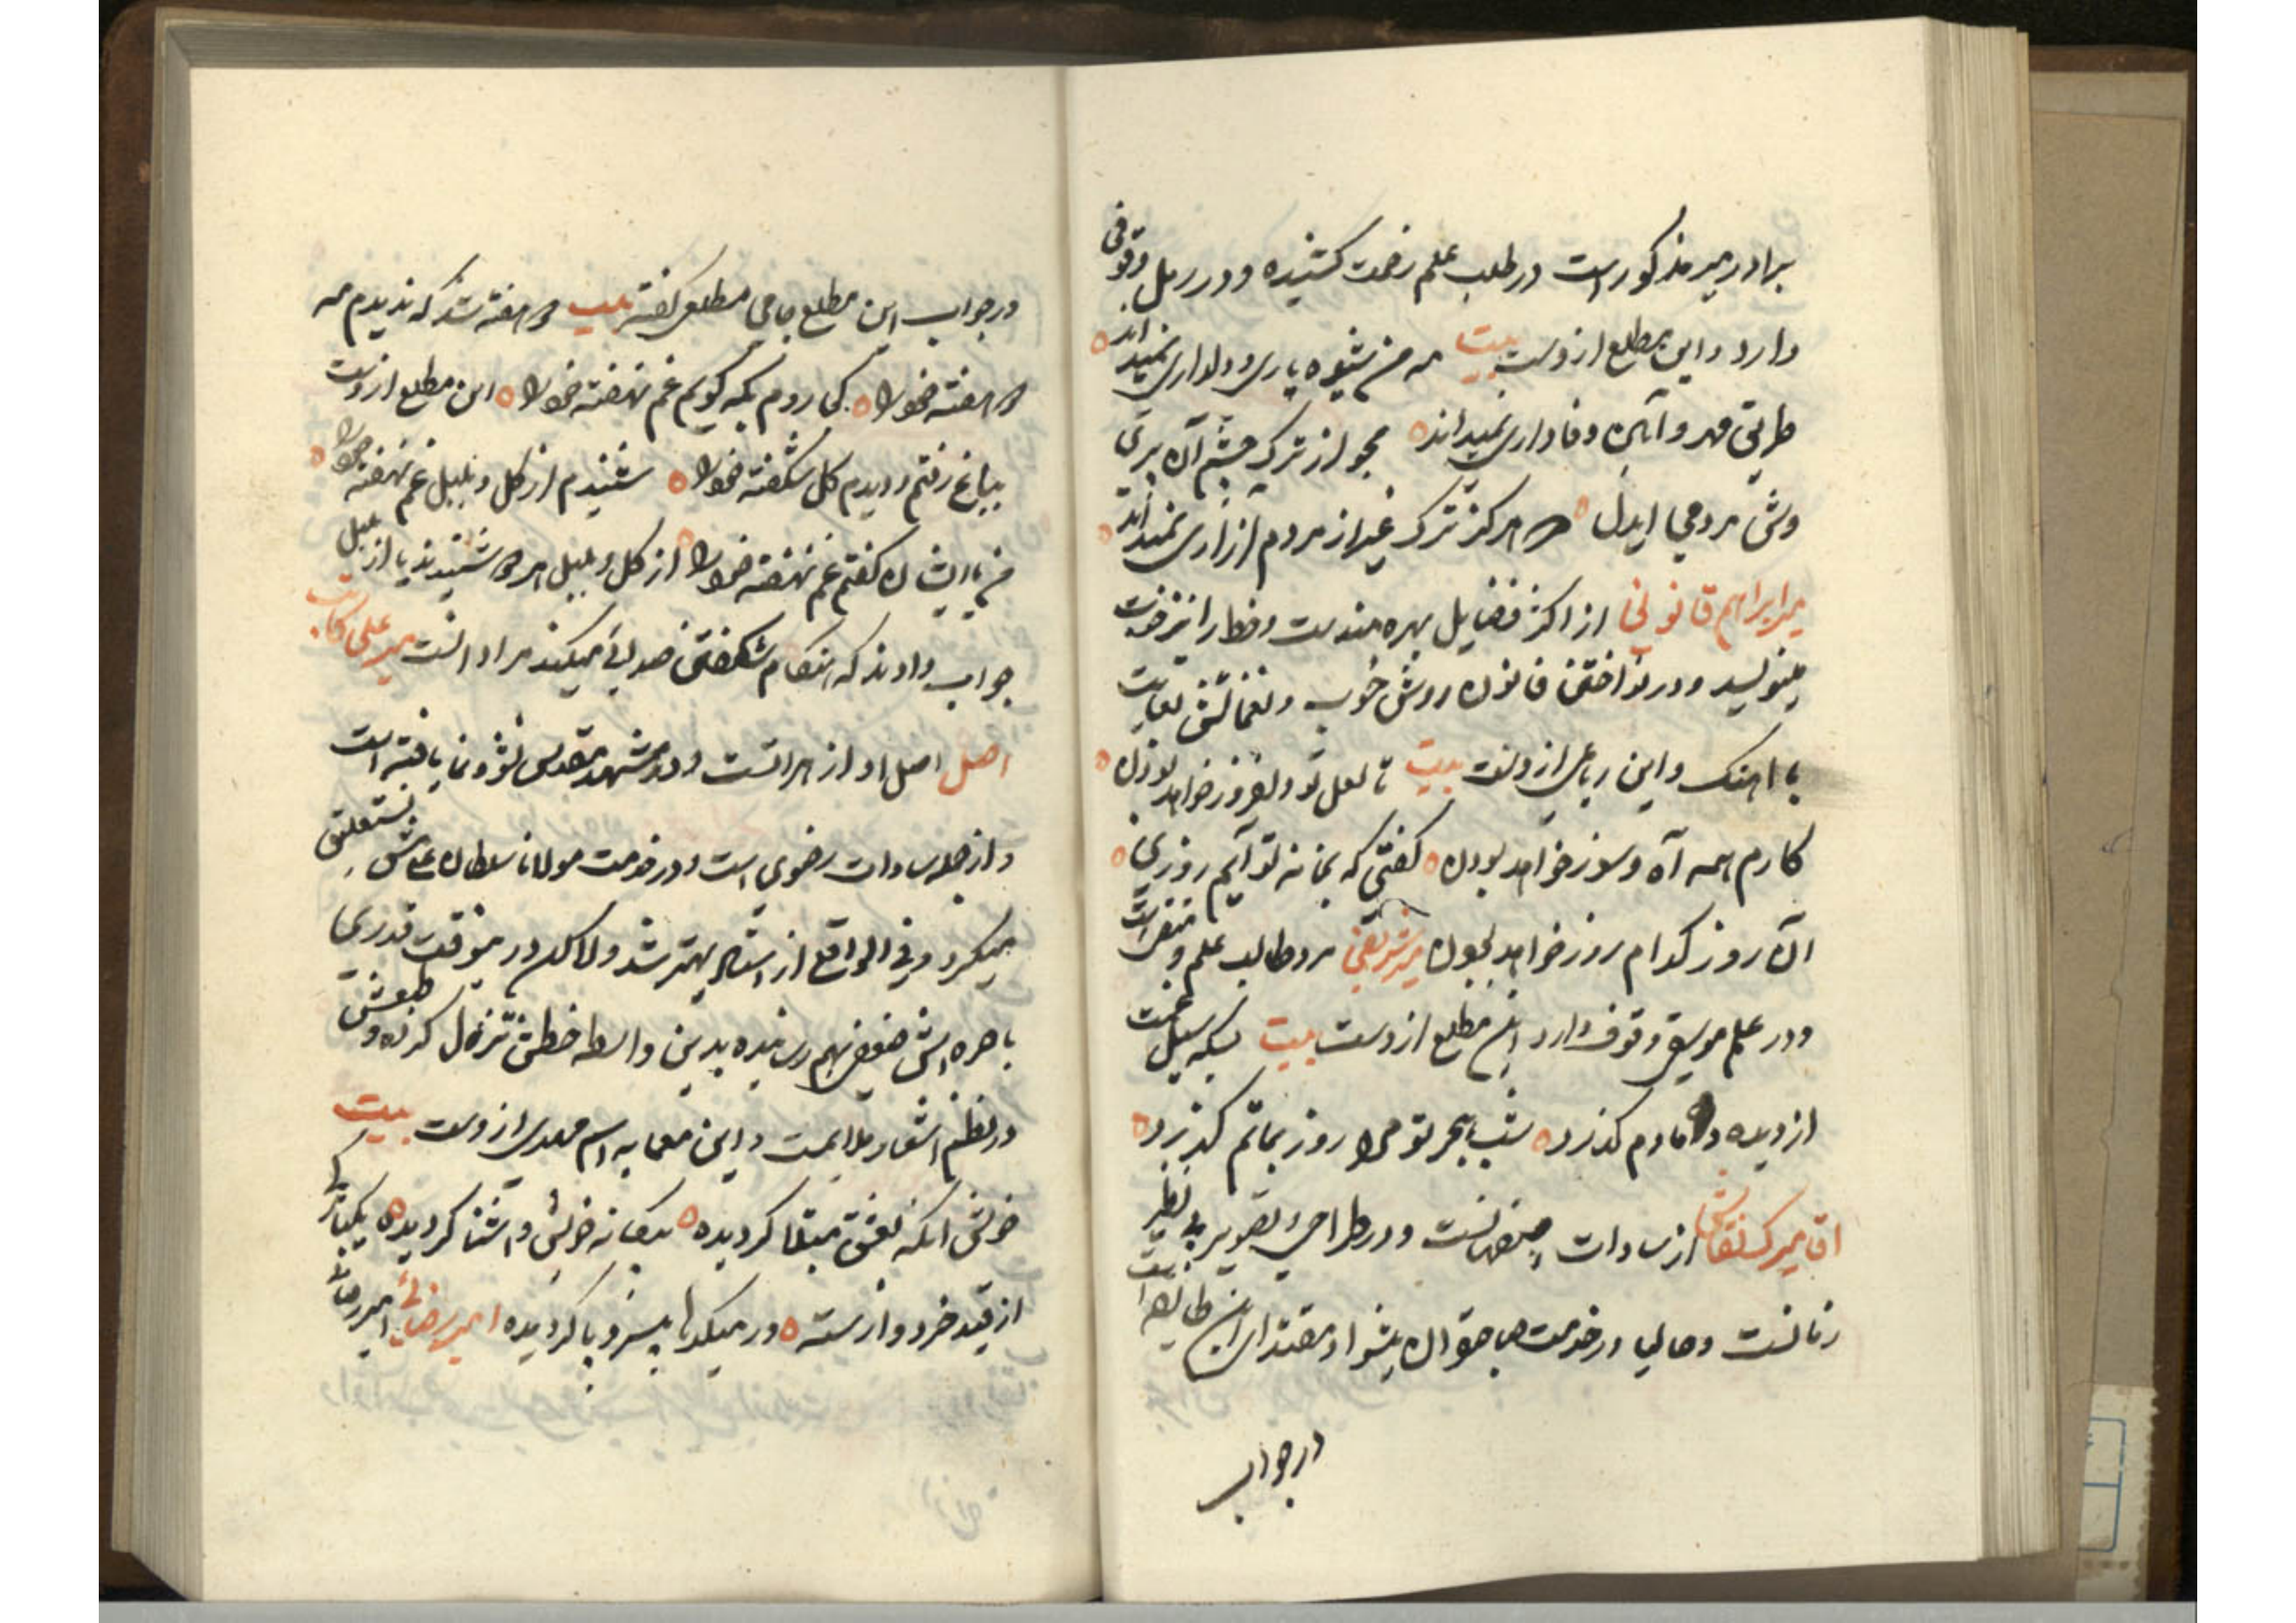 برادر میر مذکور است در طلب علم زحمت کشیده و در رمل وقوفی
دارد و این مطلع ازوست بیت مه من شیوه یاری و دلداری نمیداند
طریق مهر و آئین وفاداری نمیداند مجو از ترک چشم آن پری
وش مردمی ایدل که هرگز ترک غیر از مردم آزاری نمیداند
میر ابراهیم قانونی از اکثر فضایل بهره مندست و خط را نیز خوب
مینویسد و در نواختن قانون روشش خوب و نغماتش بغایت
با اهنگ و این رباعی ازوست بیت تا لعل تو دلفروز خواهد بودن
کارم همه آه و سوز خواهد بودن گفتی که بخانه تو آیم روزی
آن روز کدام روز خواهد بودن میر شریفی مرد طالب علم و
و در علم موسیقی وقوف دارد این مطلع ازوست بیت بسکه سیل غمت
از دیده دمادم گذرد شب بهجر تو مرا روز بماتم گذرد
اقا میرک نقاش از سادات اصفهانست و در طراحی و تصویر بی نظیر
زمانست و حالیا در خدمت صاحبقران پیشوا و مقتدای این طایفه است
در جواب
در جواب این مطلع جامی مطلعی گفته بیت دو هفته شد که ندیدم مه
دو هفته خود را کجا روم بکه گویم غم نهفته خود را این مطلع ازوست
بباغ رفتم و دیدم گل شکفته خود را شنیدم از گل و بلبل غم نهفته خود را
من بایشان گفتم غم نهفته خود را از گل و بلبل هر دو شنیدند یا از بلبل
جواب دادند که هنگام شکفتن صدایی میکند مراد آنست میر علی کاتب
اصل اصل او از هراتست و در مشهد مقدس نشو و نما یافته است
و از جمله سادات رضوی است و در خدمت مولانا سلطان علی مشق نستعلیق
میکرد و فی الواقع از استاد بهتر شد و لاکن درینوقت قدری
باصره اش ضعف بهم رسانیده بدین واسطه خطش تنزل کرده و طبعش
در نظم اشعار ملایمت و این معما به اسم مهدی ازوست بیت
خوش آنکه بعشق مبتلا گردیده بیگانه خویش و آشنا گردیده یکبارگی
از قید خرد وارسته در میکدها بیسر و پا گردیده امیر رضایی